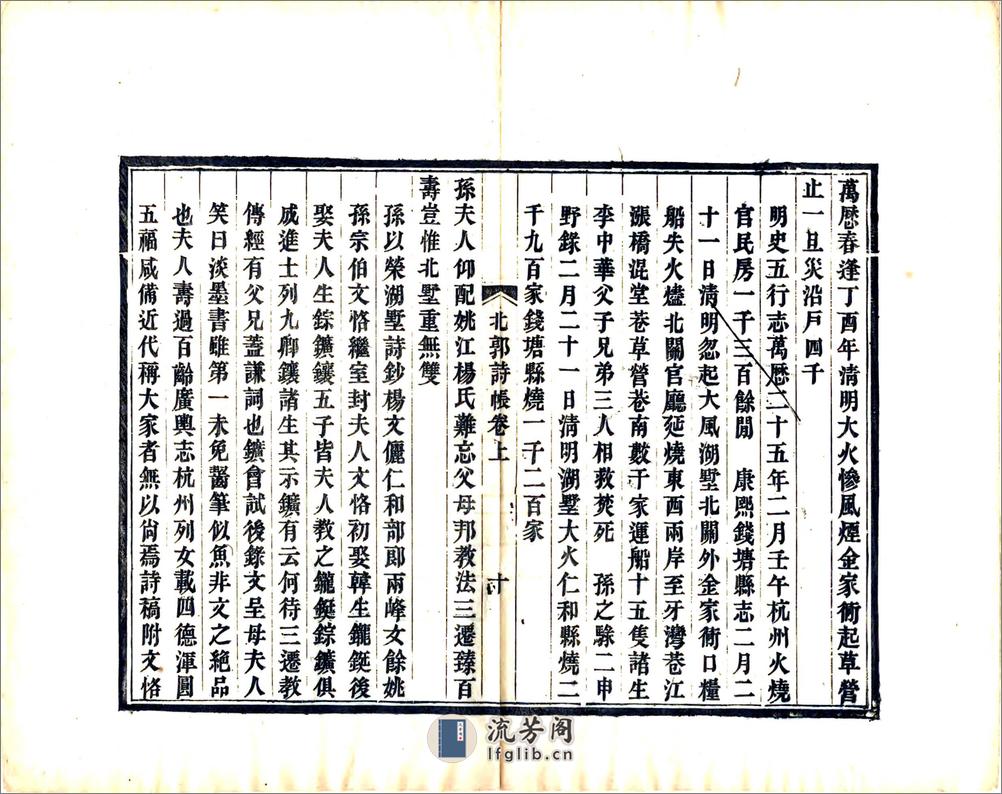 萬厯春逢丁酉年清明大火慘風煙金家衖起草營
止一旦災沿戸四千
明史五行志萬厯二十五年二月壬午杭州火燒
官民房一千三百餘間　康熙錢塘縣志二月二
十一日清明忽起大風湖墅北關外金家衖口糧
船失火燼北關官廳延燒東西兩岸至牙灣巷江
漲橋混堂巷草營巷南數千家運船十五隻諸生
李中華父子兄弟三人相救焚死　孫之騄二申
野錄二月二十一日清明湖墅大火仁和縣燒二
千九百家錢塘縣燒一千二百家
北郭詩帳卷上
十
孫夫人仰配姚江楊氏難忘父母邦教法三遷臻百
壽豈惟北墅重無雙
孫以榮湖墅詩鈔楊文儷仁和部郎兩峰女餘姚
孫宗伯文恪繼室封夫人文恪初娶韓生鑨鋌後
娶夫人生錝鑛鑲五子皆夫人教之鑨鋌錝鑛俱
成進士列九卿鑲諸生其示鑛有云何待三遷教
傳經有父兄蓋謙詞也鑛會試後錄文呈母夫人
笑曰淡墨書雖第一未免醤筆似魚非文之絕品
也夫人壽過百齡廣輿志杭州列女載四德渾圓
五福咸備近代稱大家者無以尚焉詩稿附文恪
流芳阁
lfglib.cn